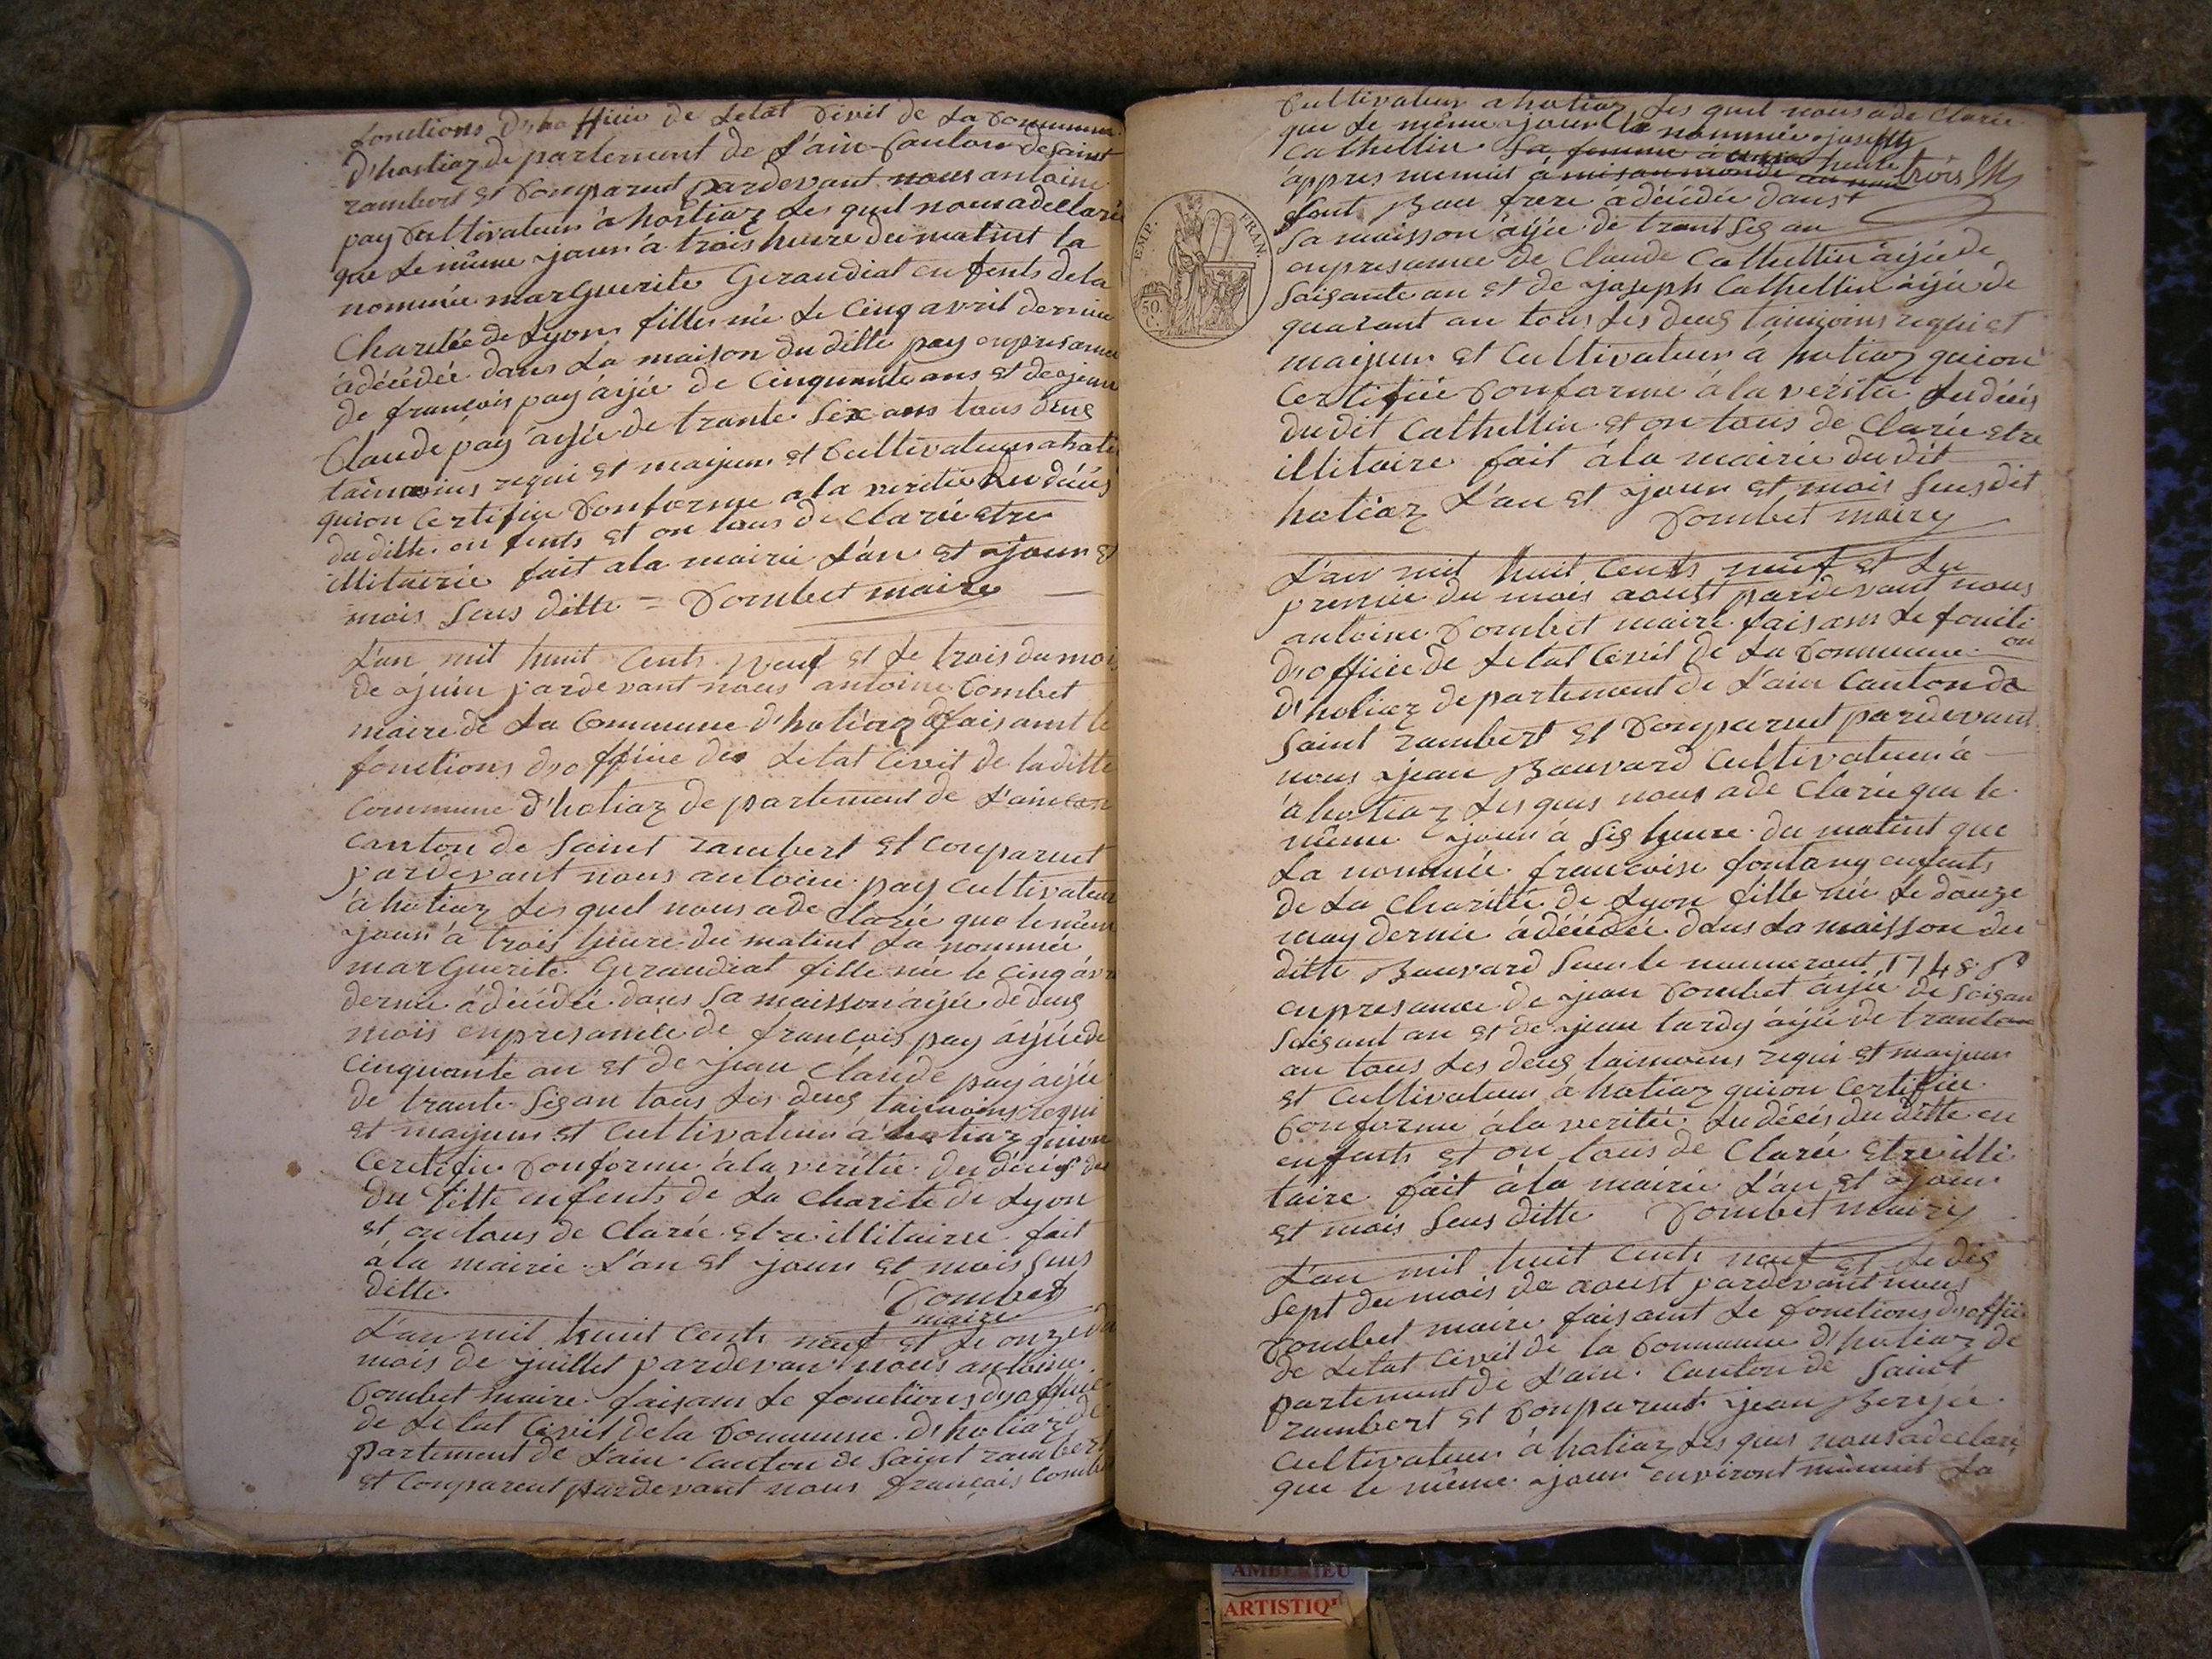 fonctions d'ho ffice de Letat Sivil de La Commune
d'hostiaz departement de L'ain Canton de Saint
rambert et Comparut pardevant nous antoine
pay Cultivateur à hostiaz Les quel nous a declaré
que Le même jour à trois heure du matint la
nommée marGuerite Geraudiat enfents dela
Charitée de Lyon fille née Le Cinq avril dernier
à décédée dans La maison du ditte pay en presance
de francois pay âgée de Cinquante ans et de jean
Claude pay agée de trante Six ans tous deus
taimoins requi et majeurs et Cultivateur a hoti
quion Certifiée Conforme a la verité du décés
du ditte enfents et on tous de Clarée etre
illitairée fait a la mairie L'an et jour et
mois Sus ditte = Combet maire
L'an mil huit Cents Neuf et Le trois du mois
de juin pardevant nous antoine Combet
maire de La Commune d'hotiaz faisant le
fonctions d'office de Letat Civil de laditte
Commune d'hotiaz departement de L'ain can
Canton de Saint rambert et Comparut
pardevant nous antoine pay Cultivateur
à hotiaz Les quel nous a de Clarée que le même
jour à trois heure du matint La nommée
marGuerite Geraudiat fille née le Cinq avr
dernie à décédée dans Sa maisson âgée de deus
mois en presance de francois pay âgée de
Cinquante an et de jean Claude pay agée
de trante Sis an tous Les deus taimoins requi
et majeurs et Cultivateur a hotiaz quion
Certifie Conforme à la verité du décés du
du ditte enfents de La Charité de Lyon
et on tous de Clarée etre illitairee fait
à la mairie L'an et jour et mois Sus
ditte Combet
maire
L'an mil huit Cents neuf et Le onze du
mois de juillet pardevant nous antoine
Combet maire faisans Le fonctions d'office
de Letat Civil dela Commune d'hotiaz de
partement de L'ain Canton de Saint rambert
et Comparent pardevant nous français Combe
Cultivateur a hotiaz Les quel nous a de Clarée
que Le même jour La nommée joseph
Cathellin Sa femme heure trois
appres menuit
Sont Bau frere à décédée dans
Sa maisson âgée de trant Sis an
en presance de Claude Cathellin âgée de
Soisante an et de joseph Cathellin âgée de
quarant an tous Les deus taimoins requi et
majeurs et Cultivateur à hotiaz quion
Certifiée Conforme à la verité du décés
du dit Cathellin et on tous de Clarée etre
illitaire fait à la mairie du dit
hotiaz L'an et jour et mois Sus dit
Combet maire
L'an mil huit Cents neuf et Le
premie du mois aoust pardevant nous
antoine Combet maire faisans Le foncti
on
d'office de Letat Civil de La Commune
d'hotiaz departement de L'ain Canton de
Saint rambert et Comparent pardevant
nous jean Bauvard Cultivateur à
à hotiaz Les quis nous a de Clarée que le
même jour à Sis heure du matint que
La nommée francoise fontany enfents
de La Charité de Lyon fille née Le douze
may dernie à décédée dans La maisson du
ditte Bauvard Sous le numeraut 1748
en presance de jean Combet âgée de Soisan
Soisant an et de jean tardy âgée de trant
an tous Les deus taimoins requi et majeurs
et Cultivateur à hotiaz quion Certifiée
Conforme à la verité du décés du ditte en
enfents et on tous de Clarée etre illi
taire fait à la mairie L'an et jour
et mois Sus ditte Combet maire
L'an mil huit Cents neuf et Le dis
Sept du mois de aoust pardevant nous
Combet maire faisant Le fonctions d'office
de Letat Civil de la Commune d'hotiaz de
partement de L'ain Canton de Saint
rambert et Comparent jean Berjée
Cultivateur à hotiaz Les quis nous a declaré
que le même jour environt minuit La
EMP. FRAN.
50
AMBERIEU
ARTISTIQ